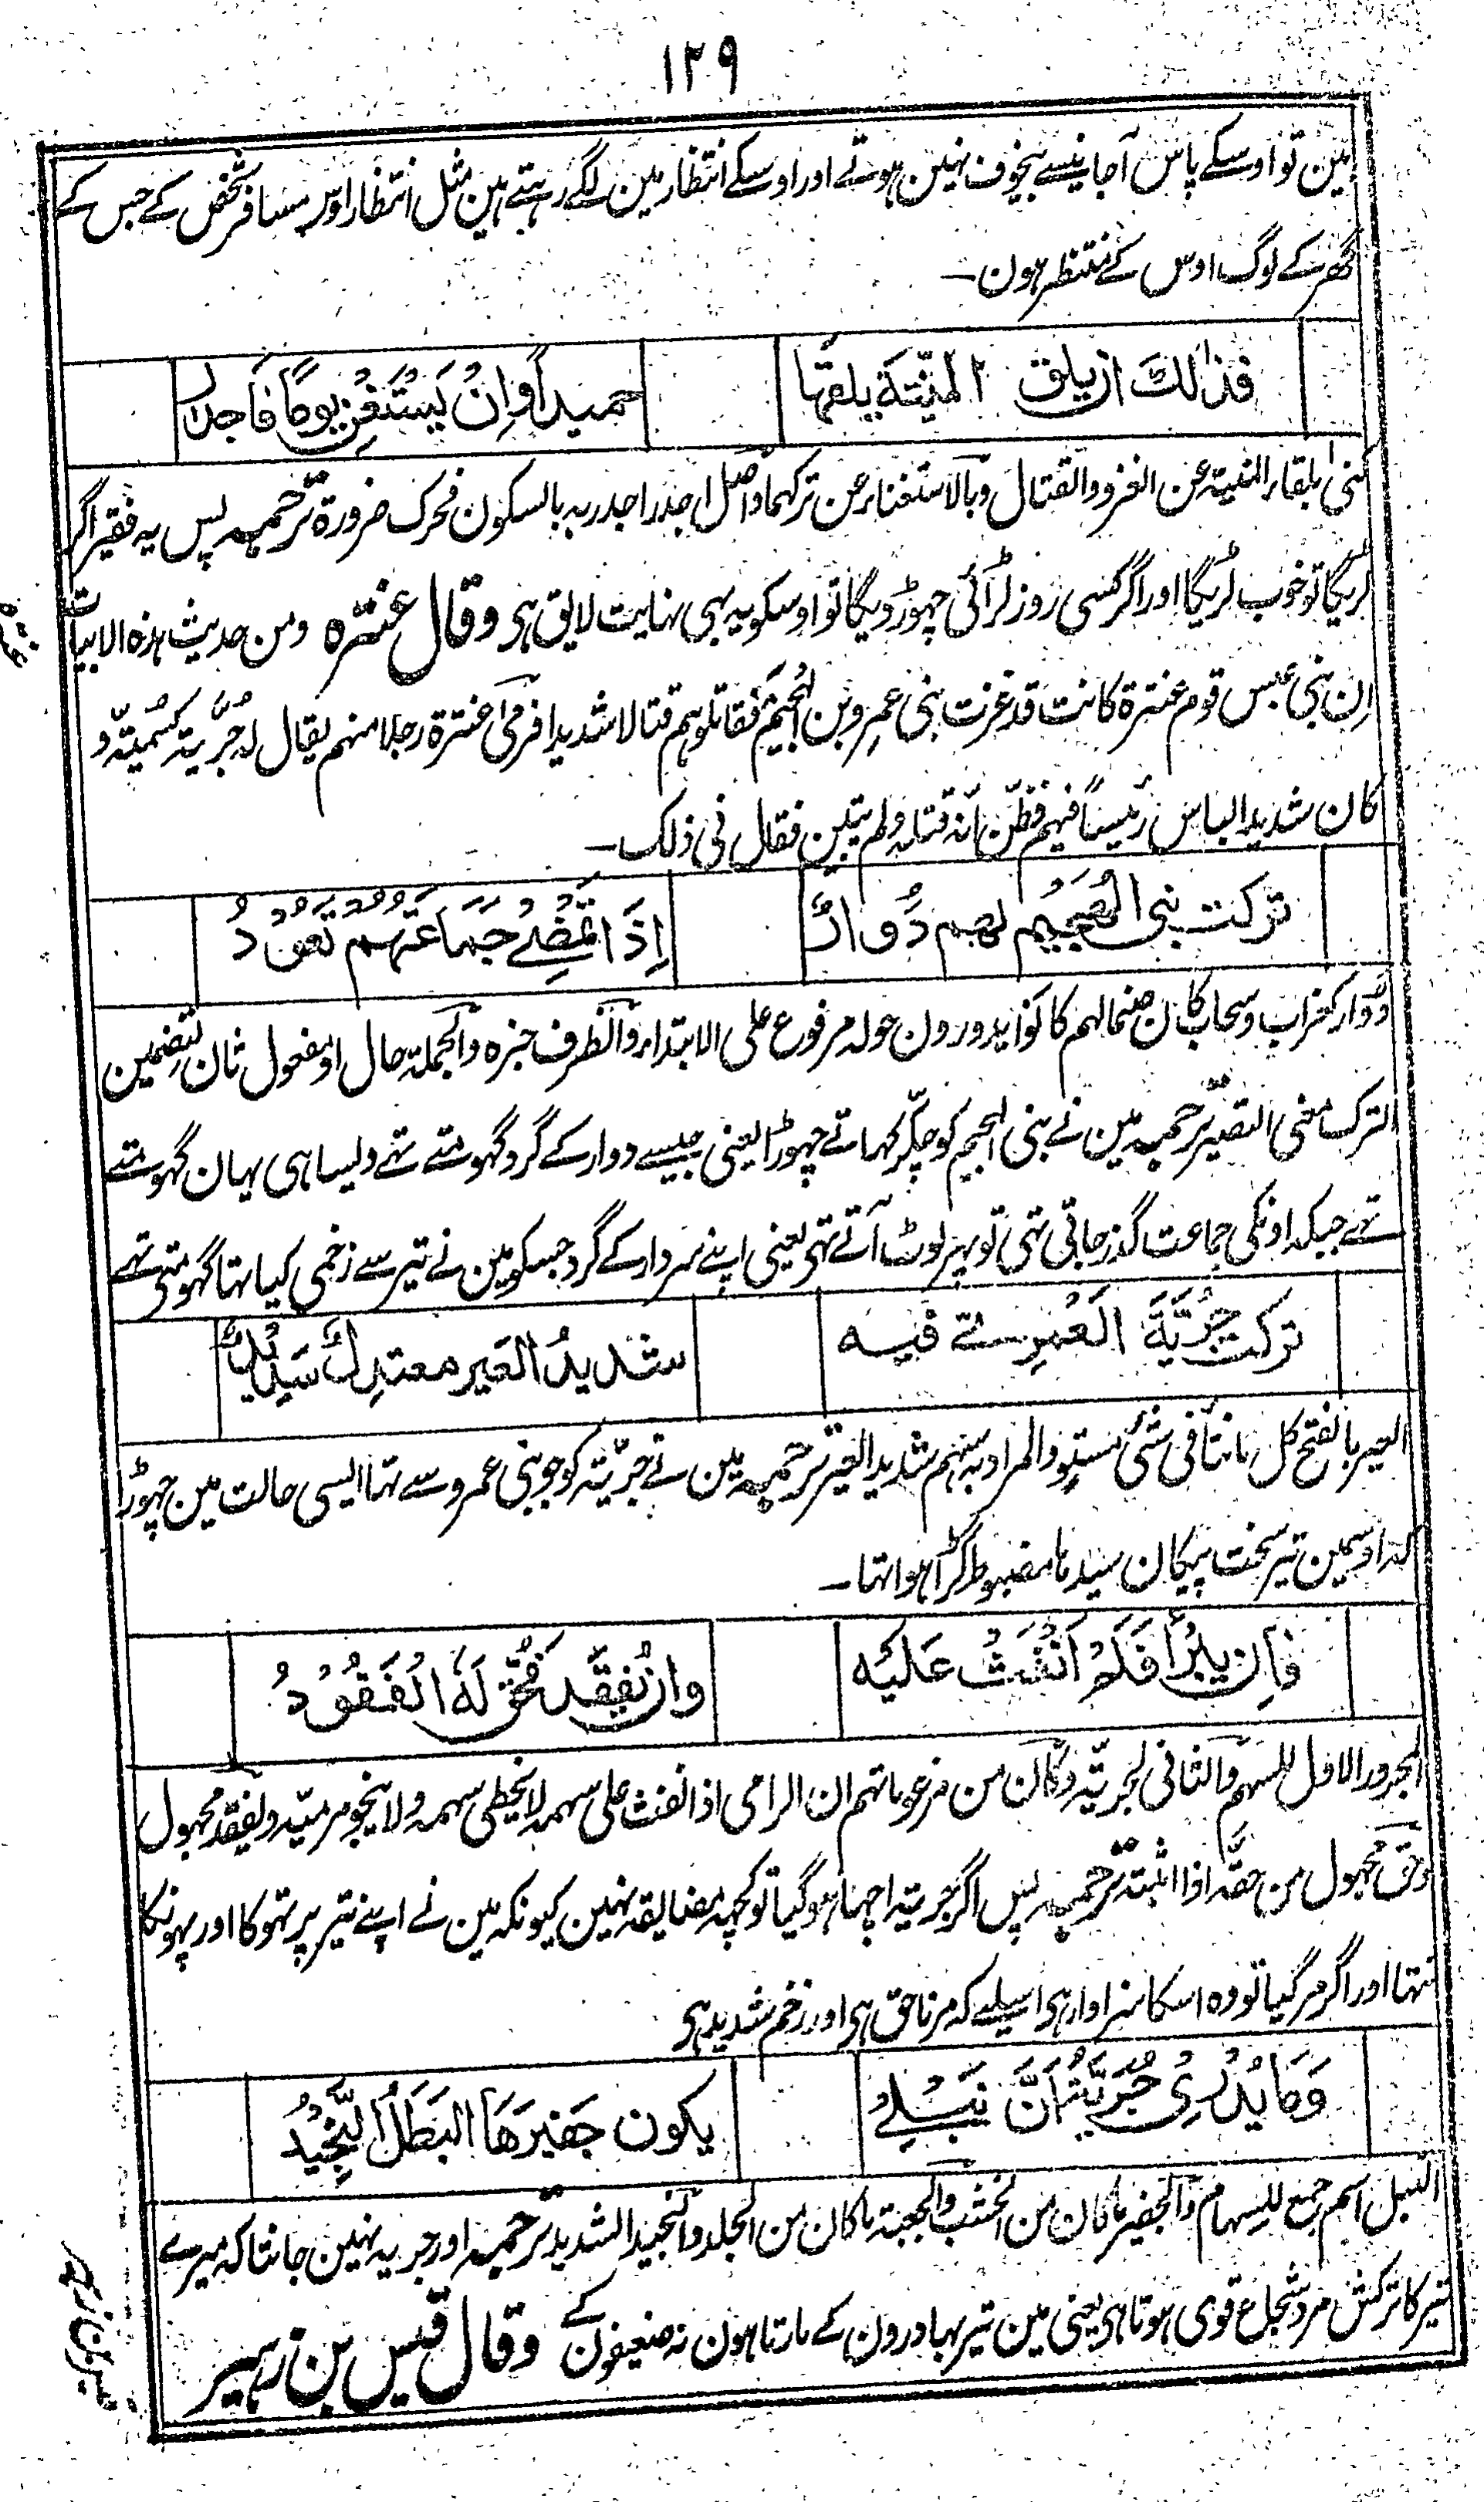 ۱۲۹
ہین تو اوسکے پاس آجانیسے بیخوف نہین ہوتے اور اوسکے انتظار مین لگے رہتے ہین مثل انتظار اوس مسافر شخص کے جس کے
گھر کے لوگ اوس کے منتظر ہون ۔
فذٰلك ان یلق المنیّۃ یلقہا حمیداً وان یستغن یوماً فاجدر
کنی بلقاء المنیۃ عن الغزو والقتال وبالاستغناء عن ترکہما واصل اجدر اجدر بہ بالسکون فحرک ضرورۃ ترجمہ پس یہ فقیر اگر
لڑیگا تو خوب لڑیگا اور اگر کسی روز لڑائی چہوڑ دیگا تو اوسکو یہ بہی نہایت لایق ہی وقال عنترہ ومن حدیث ہذہ الابیات
ان بنی عبس قوم عنترۃ کانت قد غزت بنی عمرو بن الہُجیم فقاتلوہم قتالا شدیدا فرمی عنترۃ رجلا منہم یقال لہ جُرَیّۃ کسُمیّۃ و
کان شدید الباس رئیساً فیہم فظنّ انہ قتلہ ولم یتبین فقال فی ذلک ۔
ترکت بنی الھُجَیم لھم دُوارٌ اِذَا تَمْضِے جَمَاعَتُہُم تَعُوْدُ
دوار کغراب وسحاب کان صنما لہم کانوا یدورون حولہ مرفوع علی الابتداء والظرف خبرہ والجملۃ حال او مفعول ثان لتضمین
الترک معنی التصییر ترجمہ مین نے بنی الہجیم کو چکّر کہاتے چہوڑا یعنی جیسے دوار کے گرد گہومتے تہے ویسا ہی یہان گہومتے
تہے جبکہ اونکی جماعت گذر جاتی تہی تو پہر لوٹ آتے تہی یعنی اپنے سردار کے گرد جسکو مین نے تیر سے زخمی کیا تہا گہومتی تہے
ترکت جُرَیَّۃَ العَمْرِے فیہ شدیدُ العَیر معتدِلٌ سَدِیدٌ
العیر بالفتح کل ناتٍ فی شئ مستوٍ والمراد بہ سہم شدید العیر ترجمہ مین نے جریّۃ کو جو بنی عمرو سے تہا ایسی حالت مین چہوڑا
کہ اوسمین تیر سخت پیکان سیدہا مضبوط گڑا ہوا تہا ۔
فان یبرأ فَلَمْ اَنْفُثْ عَلَیْہ وان یُفقَد فحُقَّ لَہُ الفَقُوْدُ
المجرور الاول للسہم والثانی لجریّۃ وکان من مزعوماتہم ان الرامی اذا نفث علی سہمہ لا یخطی سہمہ ولا ینجو مرمیّہ ویفقد مجہول
وحق مجہول من حقّہ اذا اثبتہ ترجمہ پس اگر جریۃ اچہا ہو گیا تو کچہہ مضایقہ نہین کیونکہ مین نے اپنے تیر پر تہوکا اور پہونکا
نتہا اور اگر مر گیا تو وہ اسکا سزاوار ہی اسیلیے کہ مرنا حق ہی اور زخم شدید ہی
وَمَا یَدْرِیْ جُرَیَّۃُ اَنَّ نَبْلِےْ یکون جفیرَھَا البَطَلُ النَّجِیْدُ
النبل اسم جمع للسہام والجفیر ما کان من الخشب والجعبۃ ما کان من الجلد والنجید الشدید ترجمہ اور جریہ نہین جانتا کہ میرے
تیر کا ترکش مرد شجاع قوی ہوتا ہی یعنی مین تیر بہادرون کے مارتا ہون نہ ضعیفون کے وقال قیس بن زہیر